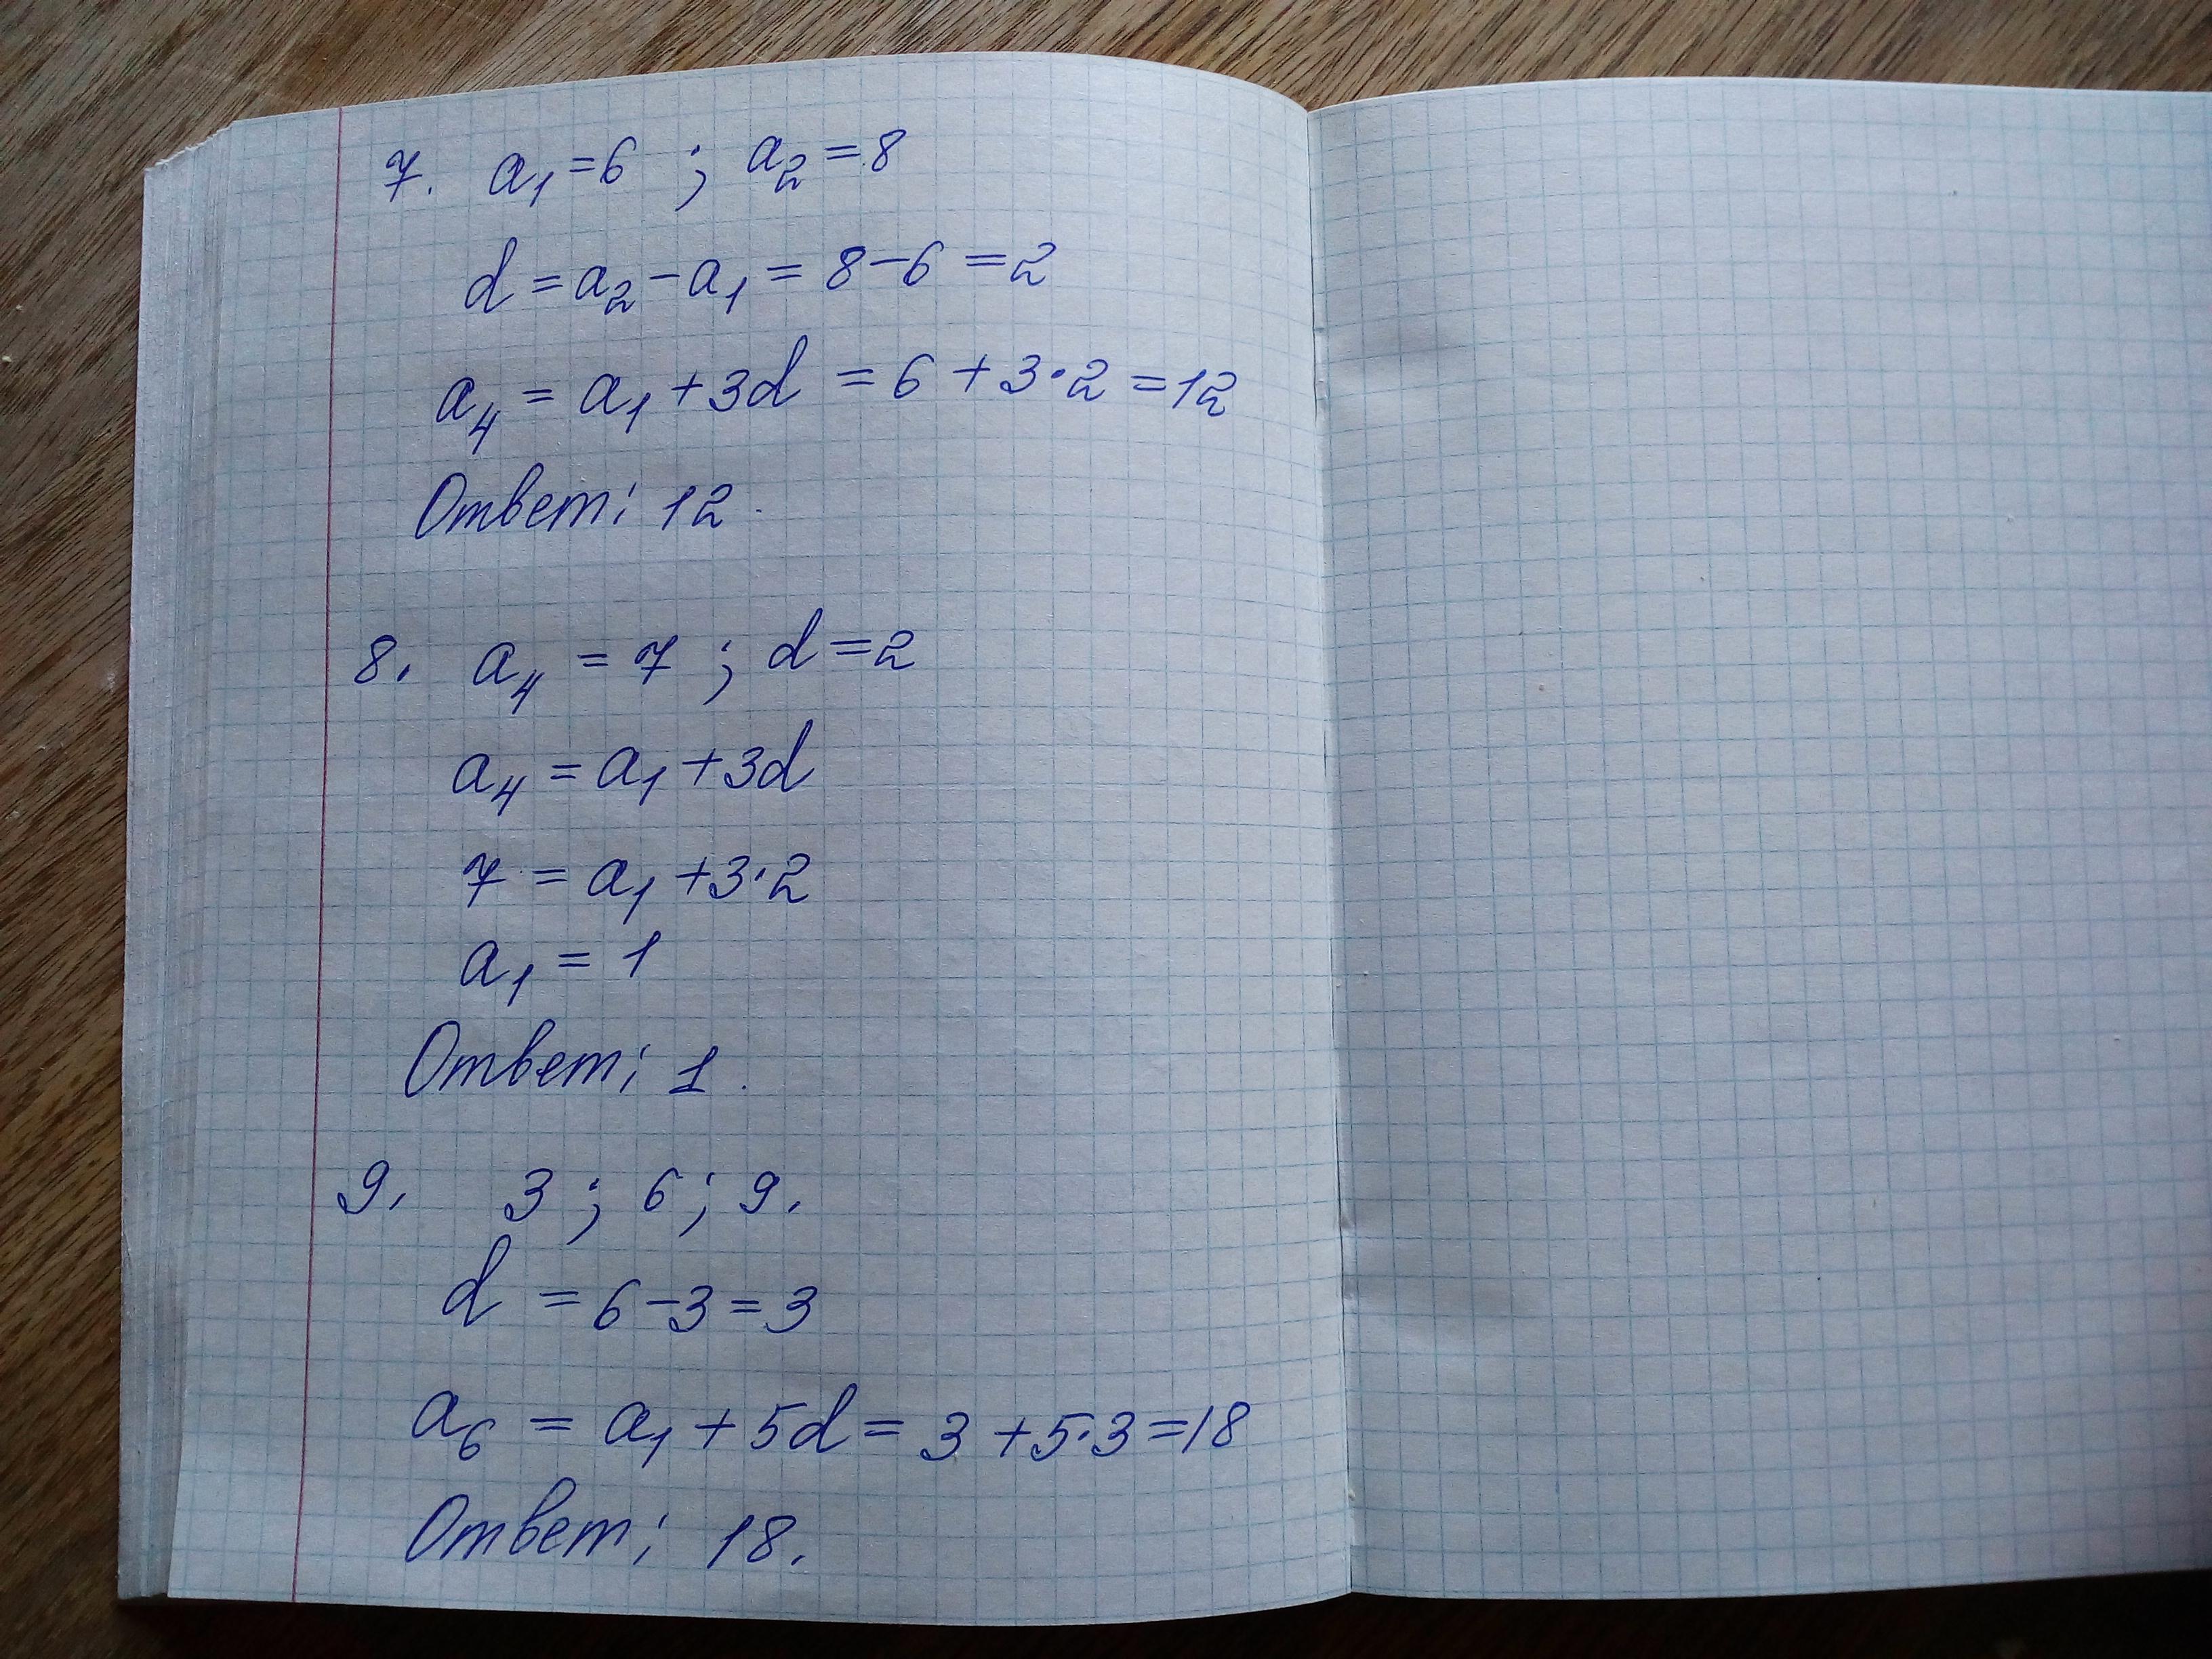 7. a₁ = 6 ; a₂ = 8
d = a₂ - a₁ = 8 - 6 = 2
a₄ = a₁ + 3d = 6 + 3·2 = 12
Ответ: 12.
8. a₄ = 7 ; d = 2
a₄ = a₁ + 3d
7 = a₁ + 3·2
a₁ = 1
Ответ: 1.
9. 3 ; 6 ; 9.
d = 6 - 3 = 3
a₆ = a₁ + 5d = 3 + 5·3 = 18
Ответ: 18.